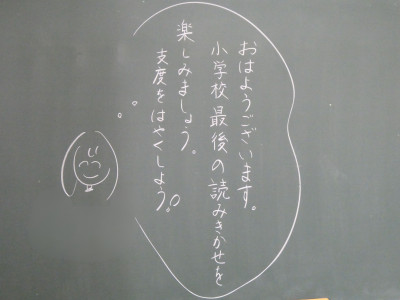 おはようございます。
小学校最後の読みきかせを
楽しみましょう。
支度をはやくしよう。